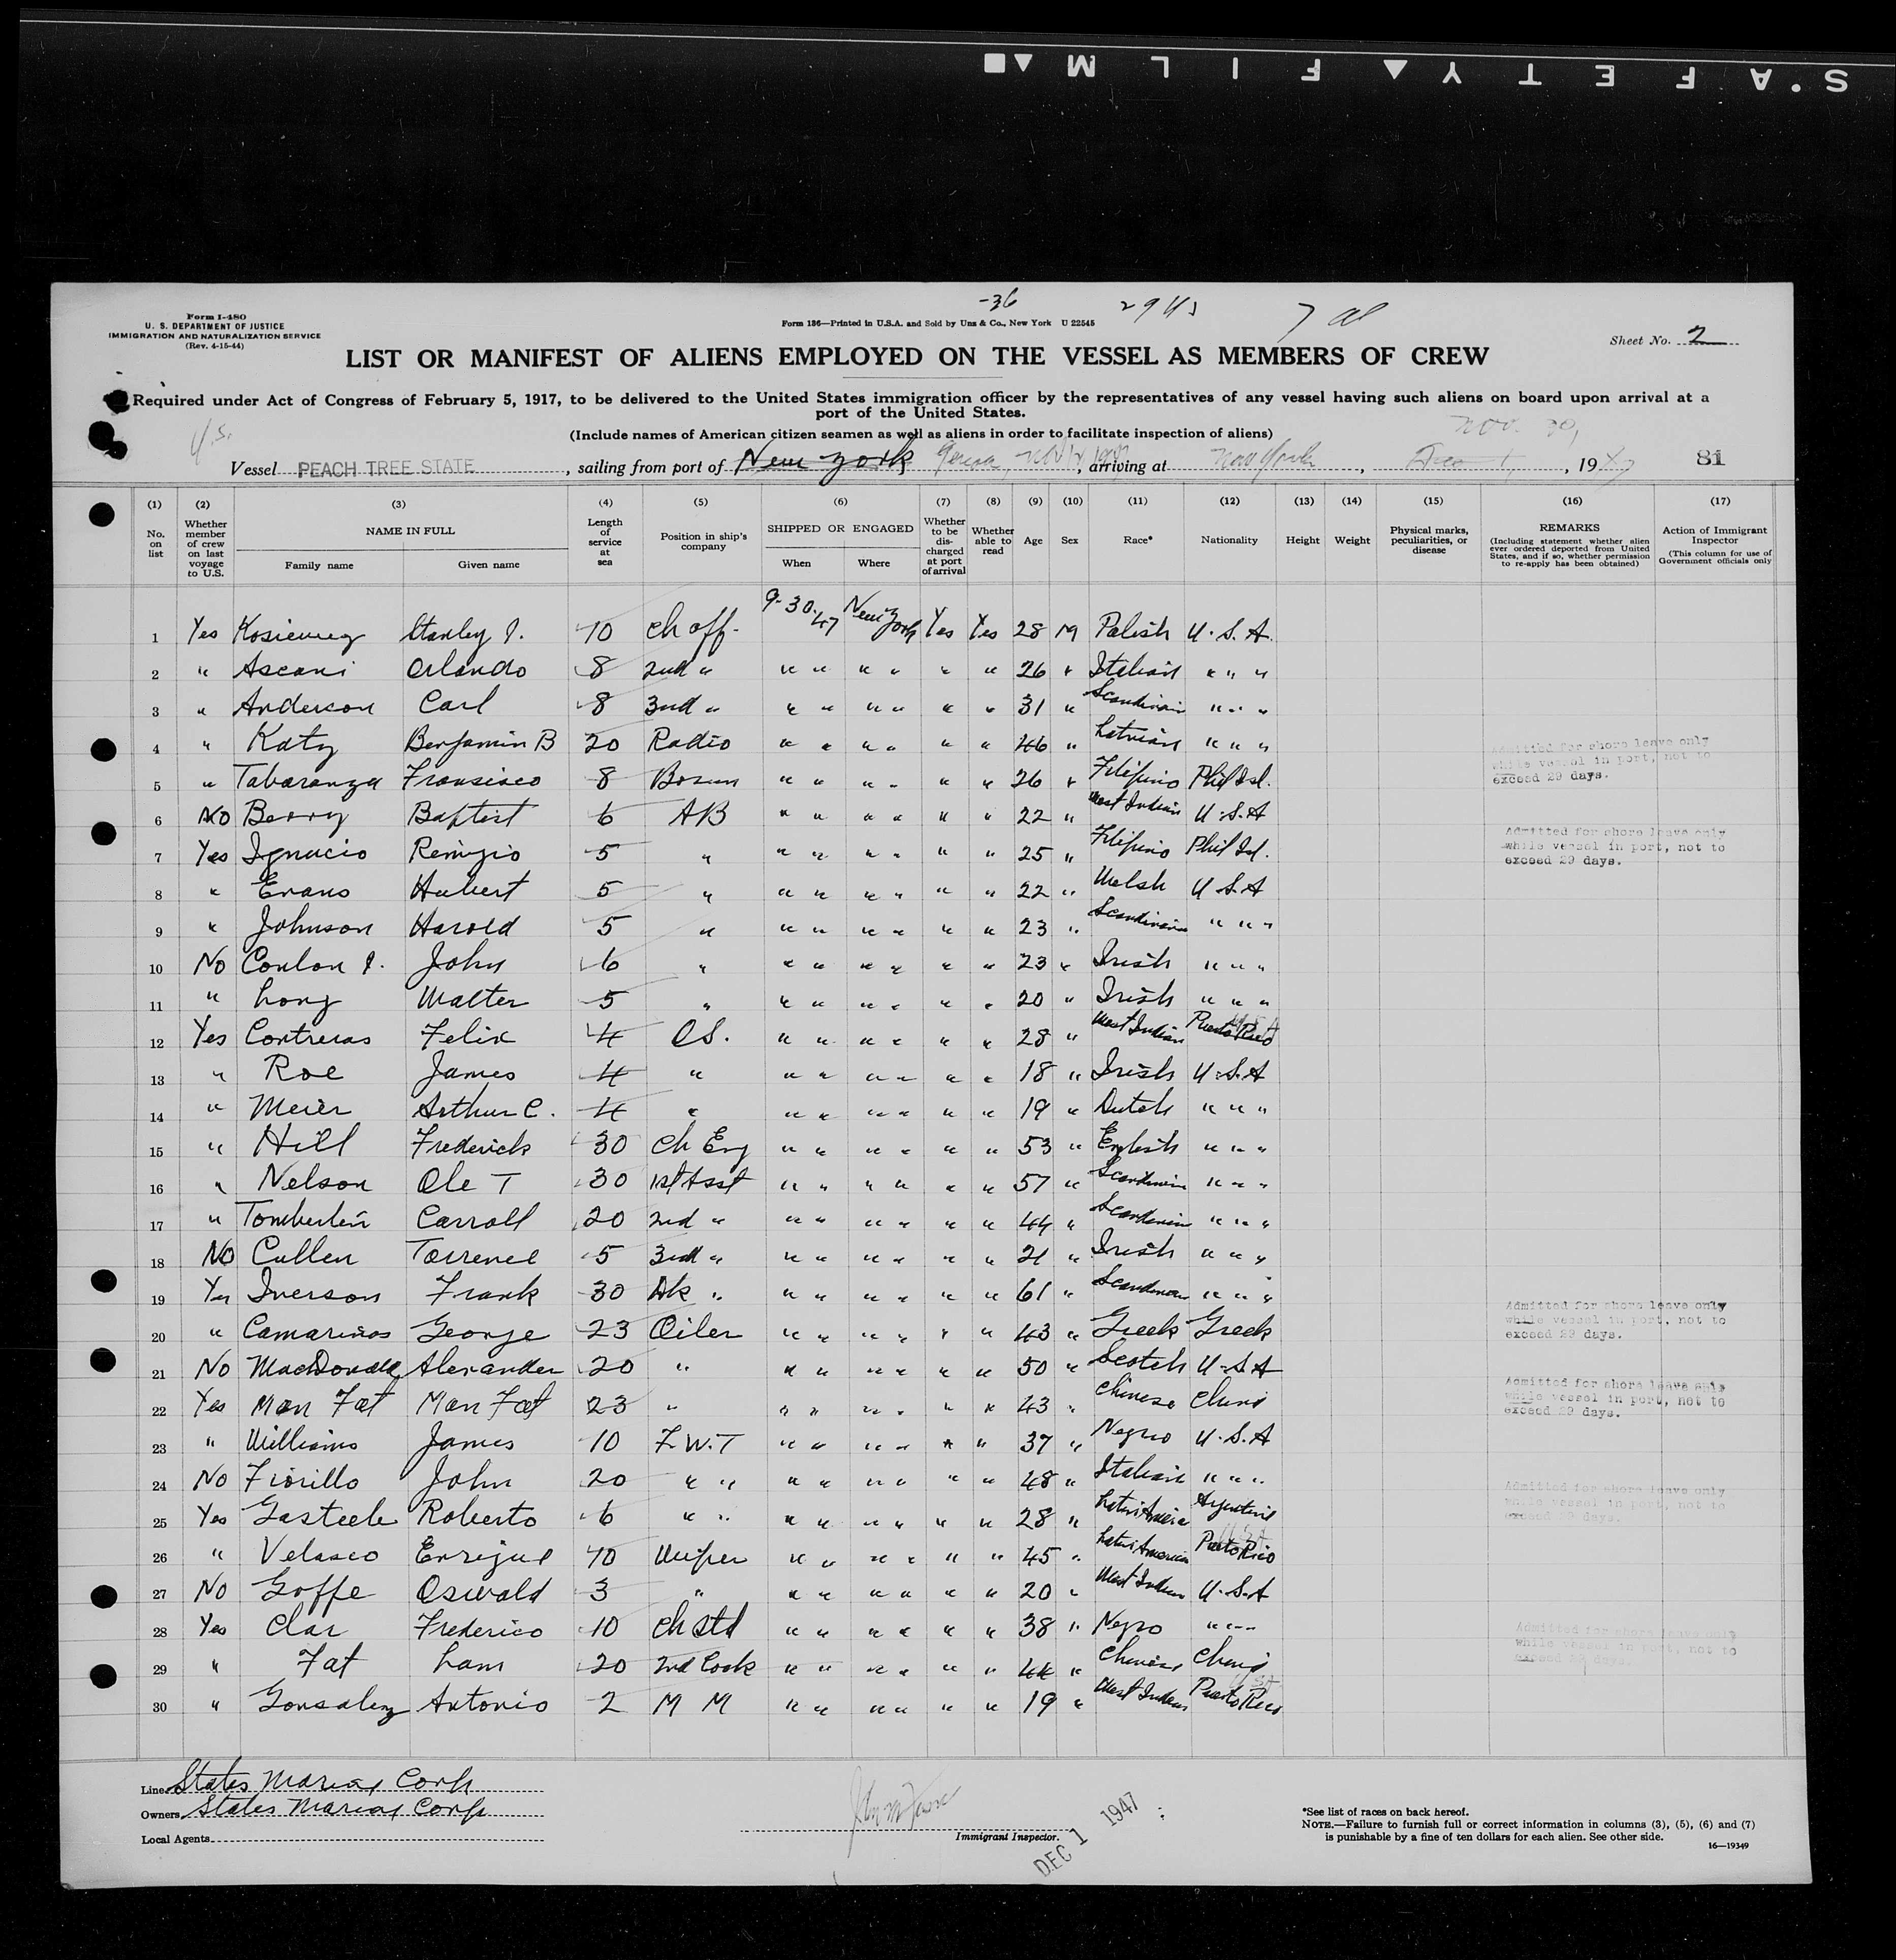 S.AFETY▲FILM▲■
-36
Form I-480
U. S. DEPARTMENT OF JUSTICE
IMMIGRATION AND NATURALIZATION SERVICE
(Rev. 4-15-44)
Form 186—Printed in U.S.A. and Sold by Unz & Co., New York U 22545
Sheet No. 2
LIST OR MANIFEST OF ALIENS EMPLOYED ON THE VESSEL AS MEMBERS OF CREW
Required under Act of Congress of February 5, 1917, to be delivered to the United States immigration officer by the representatives of any vessel having such aliens on board upon arrival at a
port of the United States.
(Include names of American citizen seamen as well as aliens in order to facilitate inspection of aliens)
U.S. Nov. 30,
Vessel PEACH TREE STATE, sailing from port of New York Genoa, arriving at New York, Dec 1, 1947 81
(1) (2) (3) (4) (5) (6) (7) (8) (9) (10) (11) (12) (13) (14) (15) (16) (17)
No. on list Whether member of crew on last voyage to U.S. NAME IN FULL Family name Given name Length of service at sea Position in ship's company SHIPPED OR ENGAGED When Where Whether to be discharged at port of arrival Whether able to read Age Sex Race* Nationality Height Weight Physical marks, peculiarities, or disease REMARKS (Including statement whether alien ever ordered deported from United States, and if so, whether permission to re-apply has been obtained) Action of Immigrant Inspector (This column for use of Government officials only
1 Yes Stanley J. 10 Ch off. 9-30-47 New York Yes Yes 28 M Polish U.S.A.
2 " Ascani Orlando 8 2nd " " " " " " " 26 " Italian " " "
3 " Anderson Carl 8 3rd " " " " " " " 31 " Scandinavian " " "
4 " Katz Benjamin B 20 Radio " " " " " " 46 " Latvian " " "
5 " Tabaranza Fransisco 8 Bosun " " " " " " 26 " Filipino Phil Isl. Admitted for shore leave only while vessel in port, not to exceed 29 days.
6 No Berry Baptist 6 AB " " " " " " 22 " West Indian U.S.A
7 Yes Ignacio Remigio 5 " " " " " " " 25 " Filipino Phil Isl. Admitted for shore leave only while vessel in port, not to exceed 29 days.
8 " Evans Hubert 5 " " " " " " " 22 " Welsh U.S.A
9 " Johnson Harold 5 " " " " " " " 23 " Scandinavian " " "
10 No Conlon J. John 6 " " " " " " " 23 " Irish " " "
11 " Long Walter 5 " " " " " " " 20 " Irish " " "
12 Yes Contreras Felix 4 OS. " " " " " " 28 " West Indian Puerto Rico
13 " Roe James 4 " " " " " " " 18 " Irish U.S.A
14 " Meier Arthur C. 4 " " " " " " " 19 " Dutch " " "
15 " Hill Frederick 30 Ch Eng " " " " " " 53 " English " " "
16 " Nelson Ole T 30 1st Asst " " " " " " 57 " Scandinavian " " "
17 " Tomberlin Carroll 20 2nd " " " " " " " 44 " Scandinavian " " "
18 No Cullen Torrence 5 3rd " " " " " " " 21 " Irish " " "
19 Yes Iverson Frank 30 Dk " " " " " " " 61 " Scandinavian " " "
20 " Camarinos George 23 Oiler " " " " " " 43 " Greek Greek Admitted for shore leave only while vessel in port, not to exceed 29 days.
21 No MacDonald Alexander 20 " " " " " " " 50 " Scotch U.S.A
22 Yes Man Fat Man Fat 23 " " " " " " " 43 " Chinese China Admitted for shore leave only while vessel in port, not to exceed 29 days.
23 " Williams James 10 F.W.T " " " " " " 37 " Negro U.S.A
24 No Fiorillo John 20 " " " " " " " " 48 " Italian " " "
25 Yes Roberto 6 " " " " " " " " 28 " Latin America Argentine Admitted for shore leave only while vessel in port, not to exceed 29 days.
26 " Velasco Enrique 10 Wiper " " " " " " 45 " Latin American USA Puerto Rico
27 No Goffe Oswald 3 " " " " " " " 20 " West Indian U.S.A
28 Yes Clar Frederico 10 Ch Std " " " " " " 38 " Negro " " "
29 " Fat Lam 20 2nd Cook " " " " " " 44 " Chinese China Admitted for shore leave only while vessel in port, not to exceed 29 days.
30 " Gonsalez Antonio 2 M M " " " " " " 19 " West Indian USA Puerto Rico
Line States Marine Corp
Owners States Marine Corp
Local Agents
Immigrant Inspector.
DEC 1 1947
*See list of races on back hereof.
NOTE.—Failure to furnish full or correct information in columns (3), (5), (6) and (7)
is punishable by a fine of ten dollars for each alien. See other side.
16—19349